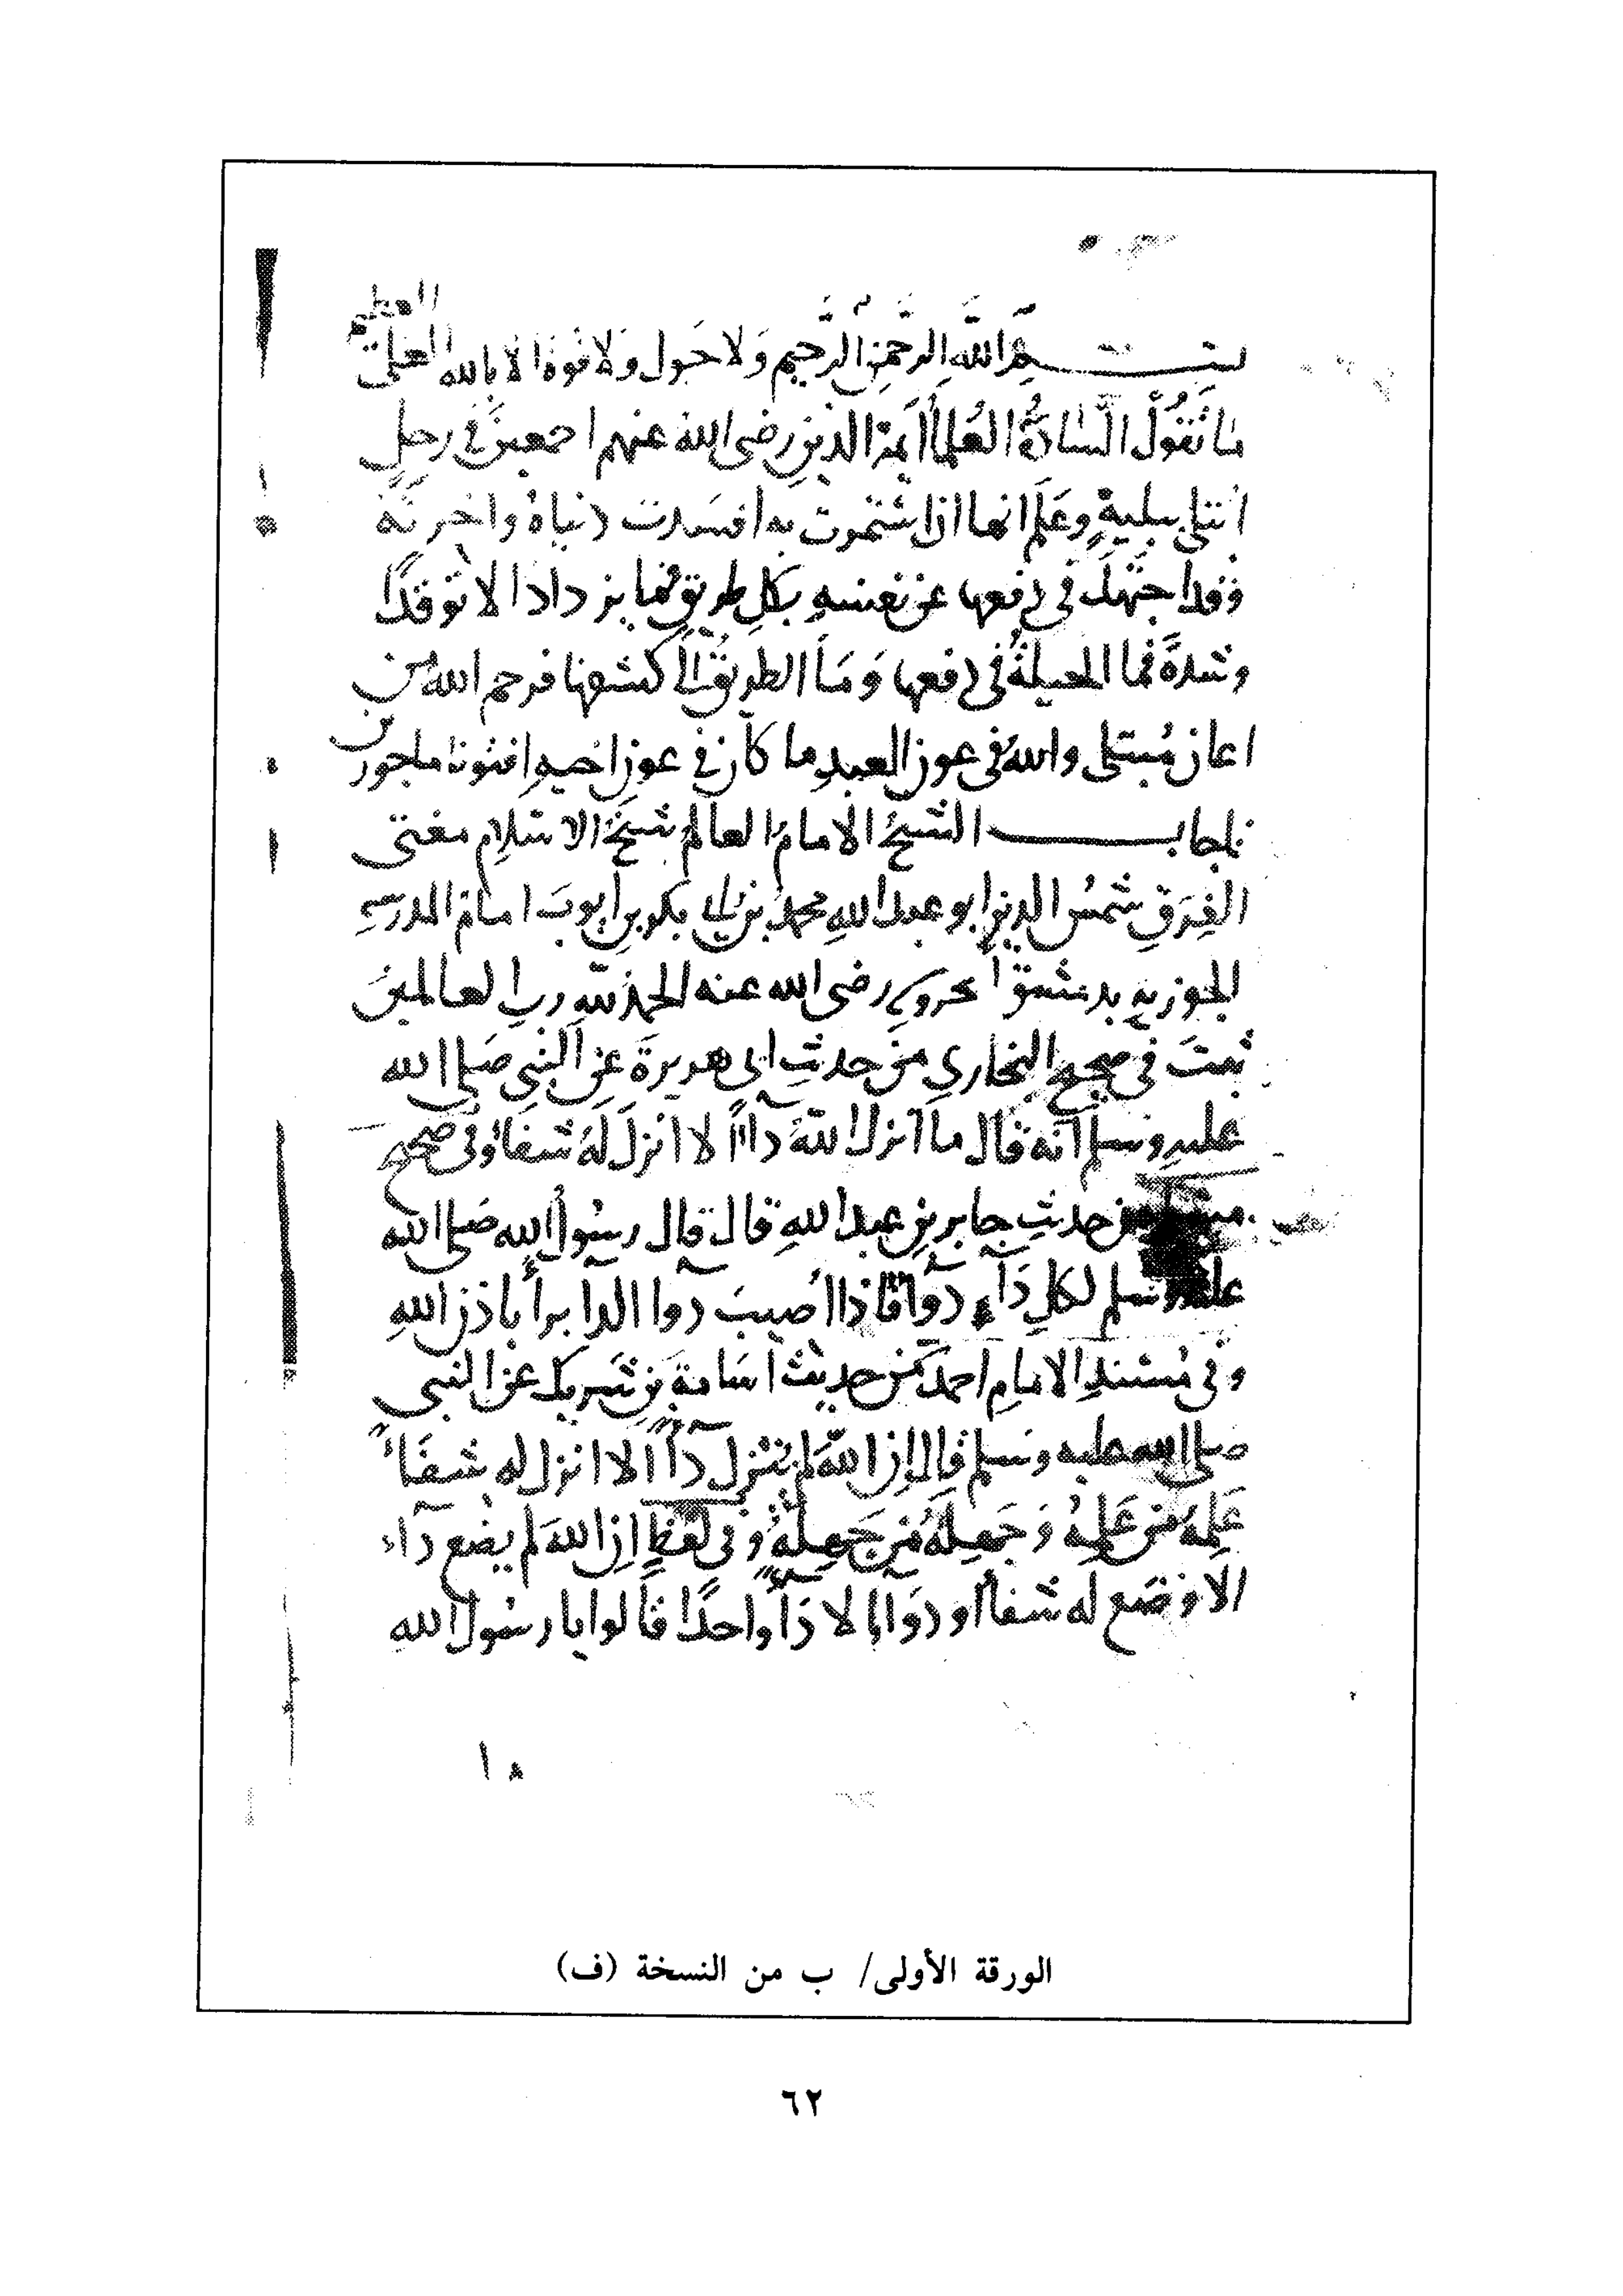 بسم الله الرحمن الرحيم ولا حول ولا قوة الا بالله العلي العظيم
ما تقول السادة العلما أيمة الدين رضى الله عنهم اجمعين في رجل
ابتلى ببلية وعلم انها ان استمرت به افسدت دنياه واخرته
وقد اجتهد في دفعها عن نفسه بكل طريق فما يزداد الا توقدا
وشدة فما الحيلة في دفعها وما الطريق الى كشفها فرحم الله من
اعان مبتلى والله في عون العبد ما كان في عون اخيه افتونا ماجورين
فاجاب الشيخ الامام العالم شيخ الاسلام مفتى
الفرق شمس الدين ابو عبد الله محمد بن ابي بكر بن ايوب امام المدرسه
الجوزيه بدمشق المحروسه رضى الله عنه الحمد لله رب العالمين
ثبت في صحيح البخاري من حديث ابى هريرة عن النبي صلى الله
عليه وسلم انه قال ما انزل الله دآا الا انزل له شفا وفى صحيح
مسلم من حديث جابر بن عبد الله قال قال رسول الله صلى الله
عليه وسلم لكل دآء دوآ فاذا اصيب دوا الدا برأ باذن الله
وفي مسند الامام احمد من حديث اسامة بن شريك عن النبي
صلى الله عليه وسلم قال ان الله لم ينزل دآا الا انزل له شفاء
علمه من علمه وجهله من جهله وفى لفظ ان الله لم يضع دآء
الا وضع له شفأ او دوآا الا دآا واحدا قالوا يا رسول الله
١٨
الورقة الأولى/ ب من النسخة (ف)
٦٢